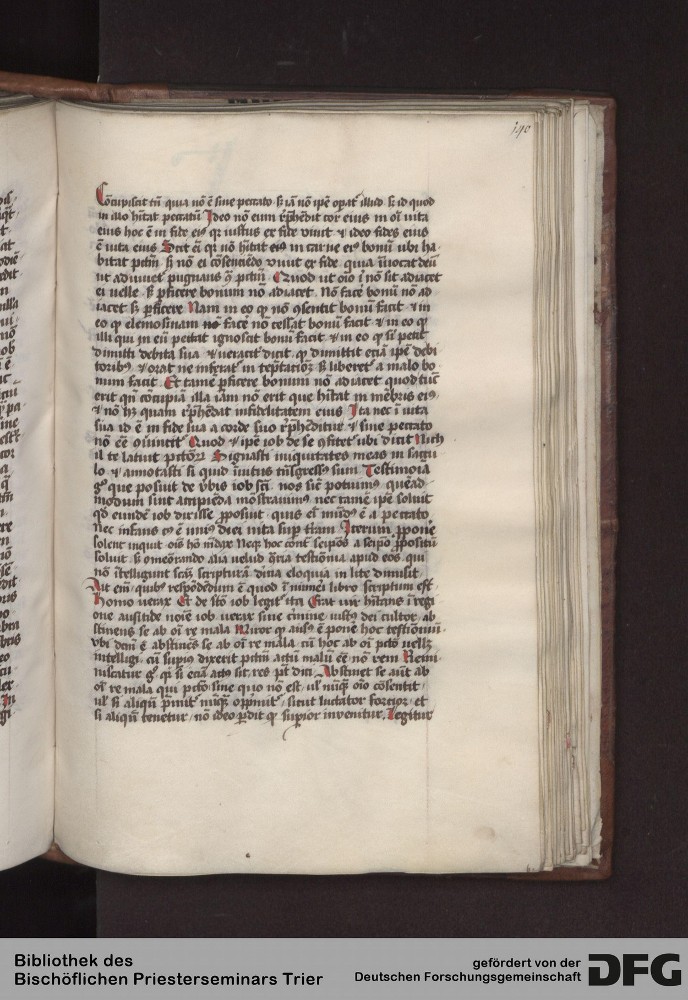 190
Cōcupiscit tn̄ quia nō ē sine peccato · sꝫ iā nō ip̄e oꝑat᷑ illud · sꝫ id quod
in illo hītat peccatū Ideo nō eum rep̄hēdit cor eius in oī uita
eius hoc ē in fide ei⁹ qꝛ iustus ex fide viuit ⁊ ideo fides eius
ē uita eius Scit eī qꝛ nō hītat ei⁹ in carne ei⁹ bonū ubi ha
bitat pctm̄ · sꝫ nō ei cōsenciēdo viuit ex fide quia īuocat deū
ut adiuuet᷑ pugnans ꝯ pctm̄ · Quod ut oīo ī nō sit adiacet
ei uelle · sꝫ ꝑficere bonum nō adiacet · Nō face᷑ bonū nō ad
iacet sꝫ ꝑficere Nam in eo qꝫ nō ꝯsentit bonū facit · ⁊ in
eo qꝫ elemosinam face᷑ nō cessat bonū facit · ⁊ in eo qꝫ
illi qui in eū peccat ignoscit bonū facit · ⁊ in eo qꝫ si petit
dimitti debita sua · ⁊ veracit᷑ dicit qꝫ dimittit eciā ip̄e debi
toribꝰ · ⁊ orat ne inferat᷑ in teptacōꝫ sꝫ liberet᷑ a malo bo
num facit · Et tamē ꝑficere bonum nō adiacet quod tūc
erit qn̄ cōcupīa illa iam nō erit que hītat in mēbris ei⁹
⁊ nō hꝫ quam rep̄hēdat infidelitatem eius Ita nec ī uita
sua id ē in fide sua a corde suo rep̄hēditur · ⁊ sine peccato
nō eē ꝯuincit᷑ Quod ⁊ ip̄e iob de se ꝯfitet᷑ ubi dicit Nich
il te latuit pctōꝝ Signasti iniquitates meas in saccu
lo ⁊ annotasti si quid īuitus trāsgressꝰ sum Testimoīa
gͦ que posuit de v̄bis iob scī · nos sic᷑ potuimꝰ · quēad
modum sint accipiēda mōstrauimꝰ nec tamē ip̄e soluit
qd eundē iob dixisse ꝓposuit · quis eī mūdꝰ ē a peccato
Nec infans cꝰ ē uniꝰ diei uita suꝑ t̄ram Iterum ꝓpone᷑
solent inquit oīs hō mēdax Neqꝫ hoc cont̄ seipōs a seip̄o ꝓpositū
soluit · sꝫ omeōrando alia uelud ꝯt̄ria testiōnia apud eos qui
nō ītelligunt scās scripturā dīna eloquia in lite dimisit ·
Ait eīm quibꝰ respōdēdum ē quod ī numeri libro scriptum est
homo uerax Et de stō iob legit᷑ ita Erat uir hītans ī regi
one ausitide noīe iob uerax sine crimine iustꝰ dei cultor ab
stinens se ab oī re mala Miror qꝫ ausꝰ ē pone᷑ hoc testiōnium
vbi dictū ē abstinēs se ab oī re mala · cū hoc ab oī pctō uellꝫ
intelligi · cū supiꝰ dixerit pctm̄ actū malū eē nō rem Remi
niscatur gͦ qꝫ si eciā actꝰ sit res pt᷑ dici · Abstinet se aūt ab
oī re mala qui pctō · sine quo nō est · ul᷑ nūqꝫ oīo cōsentit ·
ul᷑ si aliqn̄ p̄mit᷑ nūqꝫ opp̄mit᷑ / sicut luctator forcior · et
si aliqn̄ tenetur / nō ideo ꝑdit qꝫ suꝑior inuenitur. Legitur
Bibliothek des
Bischöflichen Priesterseminars Trier
gefördert von der
Deutschen Forschungsgemeinschaft
DFG